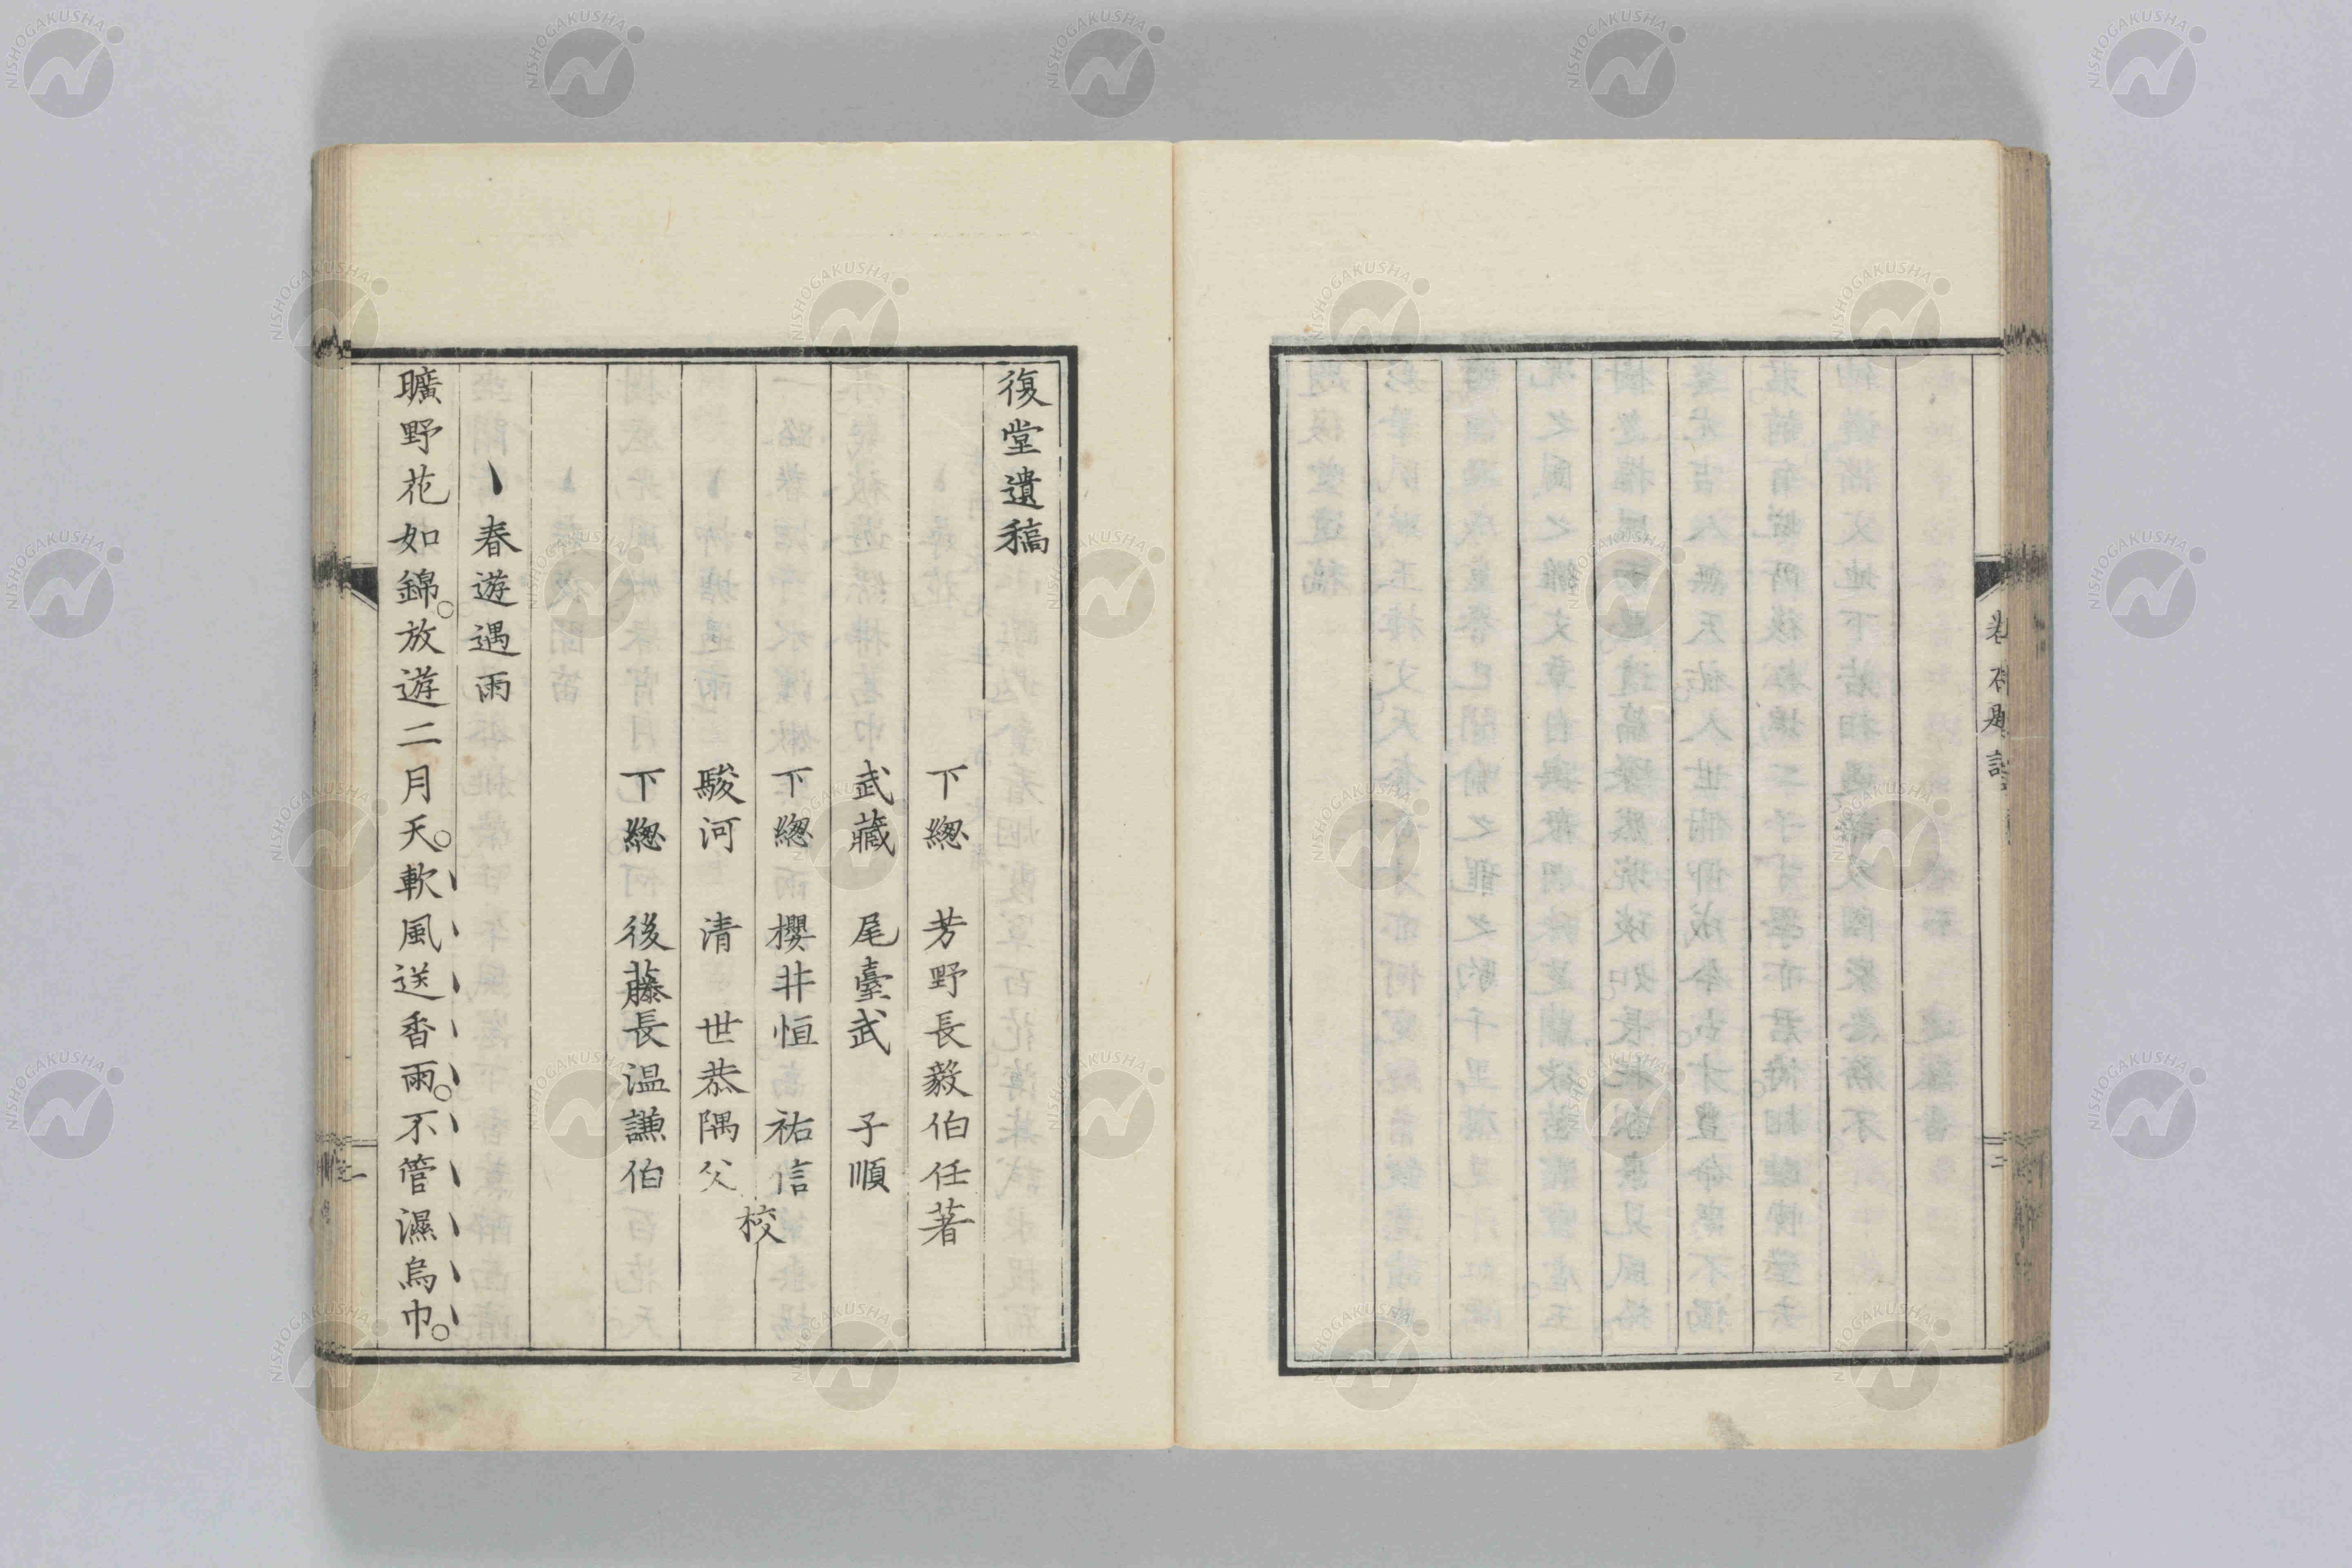 復堂遺稿
下緫　芳野長毅伯任著
武藏　尾臺武　子順
下緫　櫻井恒　祐信
駿河　清　世恭隅父
校
下緫　後藤長温謙伯
春遊遇雨
曠野花如錦。放遊二月天。軟風送香雨。不管濕烏巾。
一
二
NISHOGAKUSHA